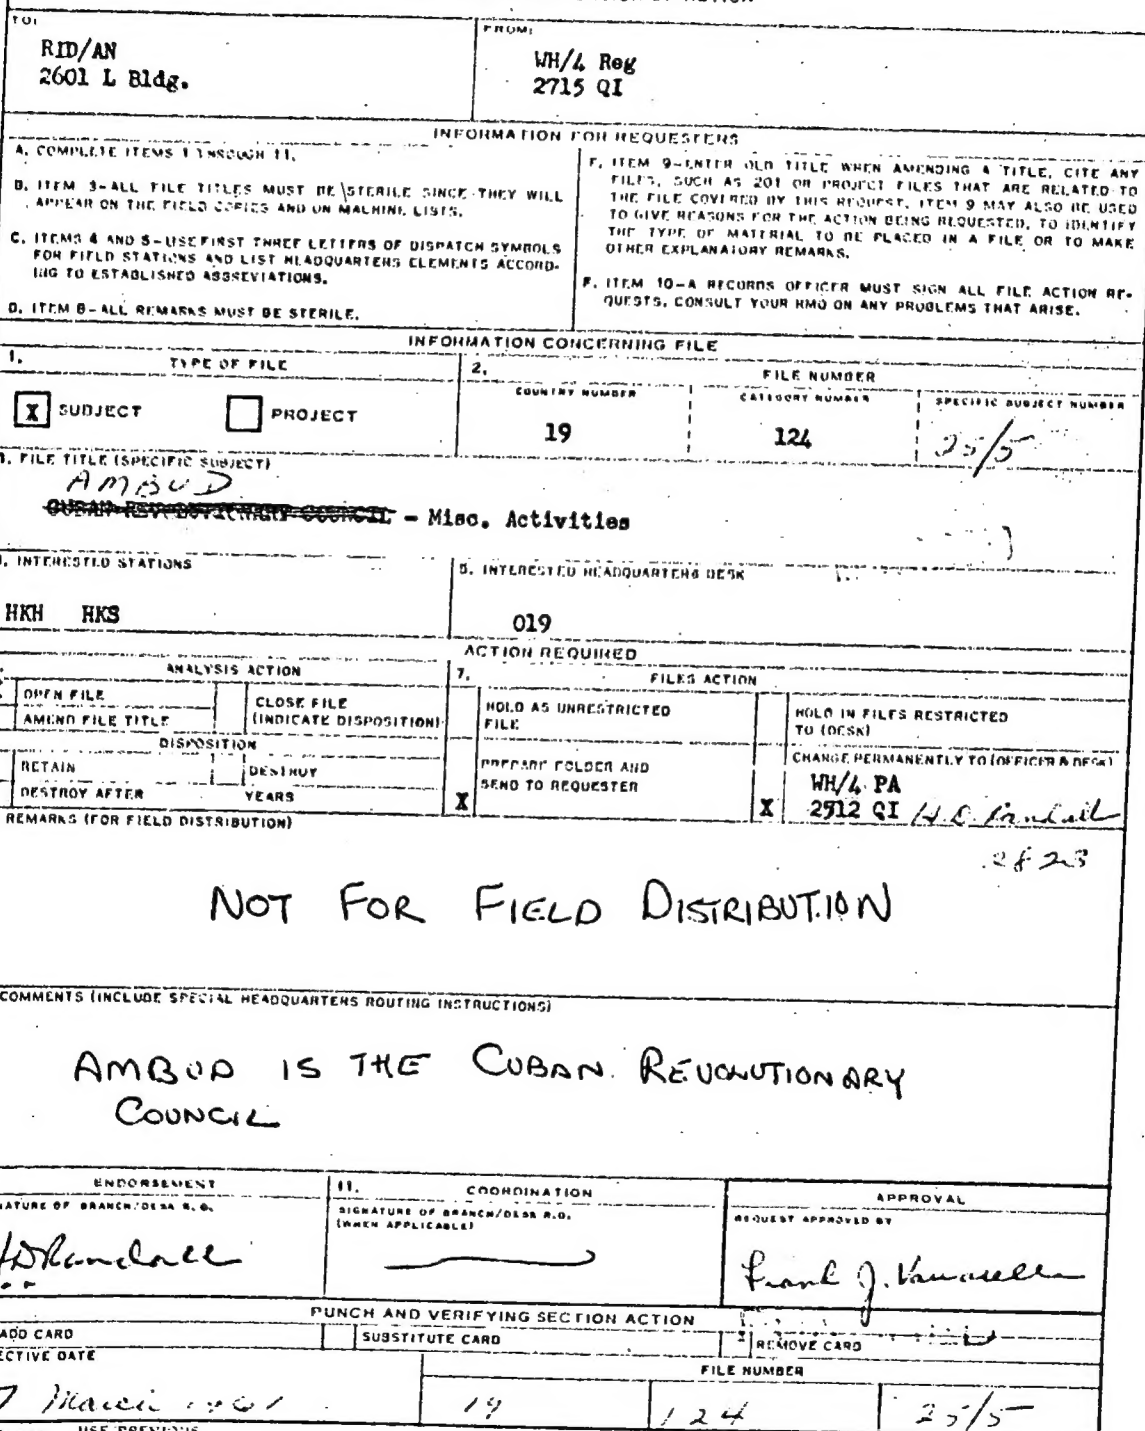 TO:
RID/AN
2601 L Bldg.
FROM:
WH/4 Reg
2715 QI
INFORMATION FOR REQUESTERS
A. COMPLETE ITEMS 1 THROUGH 11.
B. ITEM 3-ALL FILE TITLES MUST BE STERILE SINCE THEY WILL
APPEAR ON THE FIELD COPIES AND ON MACHINE LISTS.
C. ITEMS 4 AND 5-USE FIRST THREE LETTERS OF DISPATCH SYMBOLS
FOR FIELD STATIONS AND LIST HEADQUARTERS ELEMENTS ACCORD-
ING TO ESTABLISHED ABBREVIATIONS.
D. ITEM 8-ALL REMARKS MUST BE STERILE.
F. ITEM 9-ENTER OLD TITLE WHEN AMENDING A TITLE, CITE ANY
FILES, SUCH AS 201 OR PROJECT FILES THAT ARE RELATED TO
THE FILE COVERED BY THIS REQUEST. ITEM 9 MAY ALSO BE USED
TO GIVE REASONS FOR THE ACTION BEING REQUESTED, TO IDENTIFY
THE TYPE OF MATERIAL TO BE PLACED IN A FILE OR TO MAKE
OTHER EXPLANATORY REMARKS.
F. ITEM 10-A RECORDS OFFICER MUST SIGN ALL FILE ACTION RE-
QUESTS. CONSULT YOUR RMO ON ANY PROBLEMS THAT ARISE.
INFORMATION CONCERNING FILE
1. TYPE OF FILE
X SUBJECT
PROJECT
2. FILE NUMBER
COUNTRY NUMBER
CATEGORY NUMBER
SPECIFIC SUBJECT NUMBER
19
124
25/5
FILE TITLE (SPECIFIC SUBJECT)
AMBUD
CUBAN REVOLUTIONARY COUNCIL - Misc. Activities
INTERESTED STATIONS
HKH HKS
5. INTERESTED HEADQUARTERS DESK
019
ACTION REQUIRED
ANALYSIS ACTION
OPEN FILE
AMEND FILE TITLE
CLOSE FILE
(INDICATE DISPOSITION)
DISPOSITION
RETAIN
DESTROY
DESTROY AFTER YEARS
7. FILES ACTION
HOLD AS UNRESTRICTED
FILE
HOLD IN FILES RESTRICTED
TO (DESK)
X PREPARE FOLDER AND
SEND TO REQUESTER
X CHARGE PERMANENTLY TO (OFFICER & DESK)
WH/4 PA
2512 QI H.D. Randall
2823
REMARKS (FOR FIELD DISTRIBUTION)
NOT FOR FIELD DISTRIBUTION
COMMENTS (INCLUDE SPECIAL HEADQUARTERS ROUTING INSTRUCTIONS)
AMBUD IS THE CUBAN REVOLUTIONARY
COUNCIL
ENDORSEMENT
SIGNATURE OF BRANCH/DESK R.O.
HDRandall
11. COORDINATION
SIGNATURE OF BRANCH/DESK R.O.
(WHEN APPLICABLE)
APPROVAL
REQUEST APPROVED BY
PUNCH AND VERIFYING SECTION ACTION
ADD CARD
SUBSTITUTE CARD
REMOVE CARD
FILE NUMBER
March 1961
19
124
25/5
USE PREVIOUS